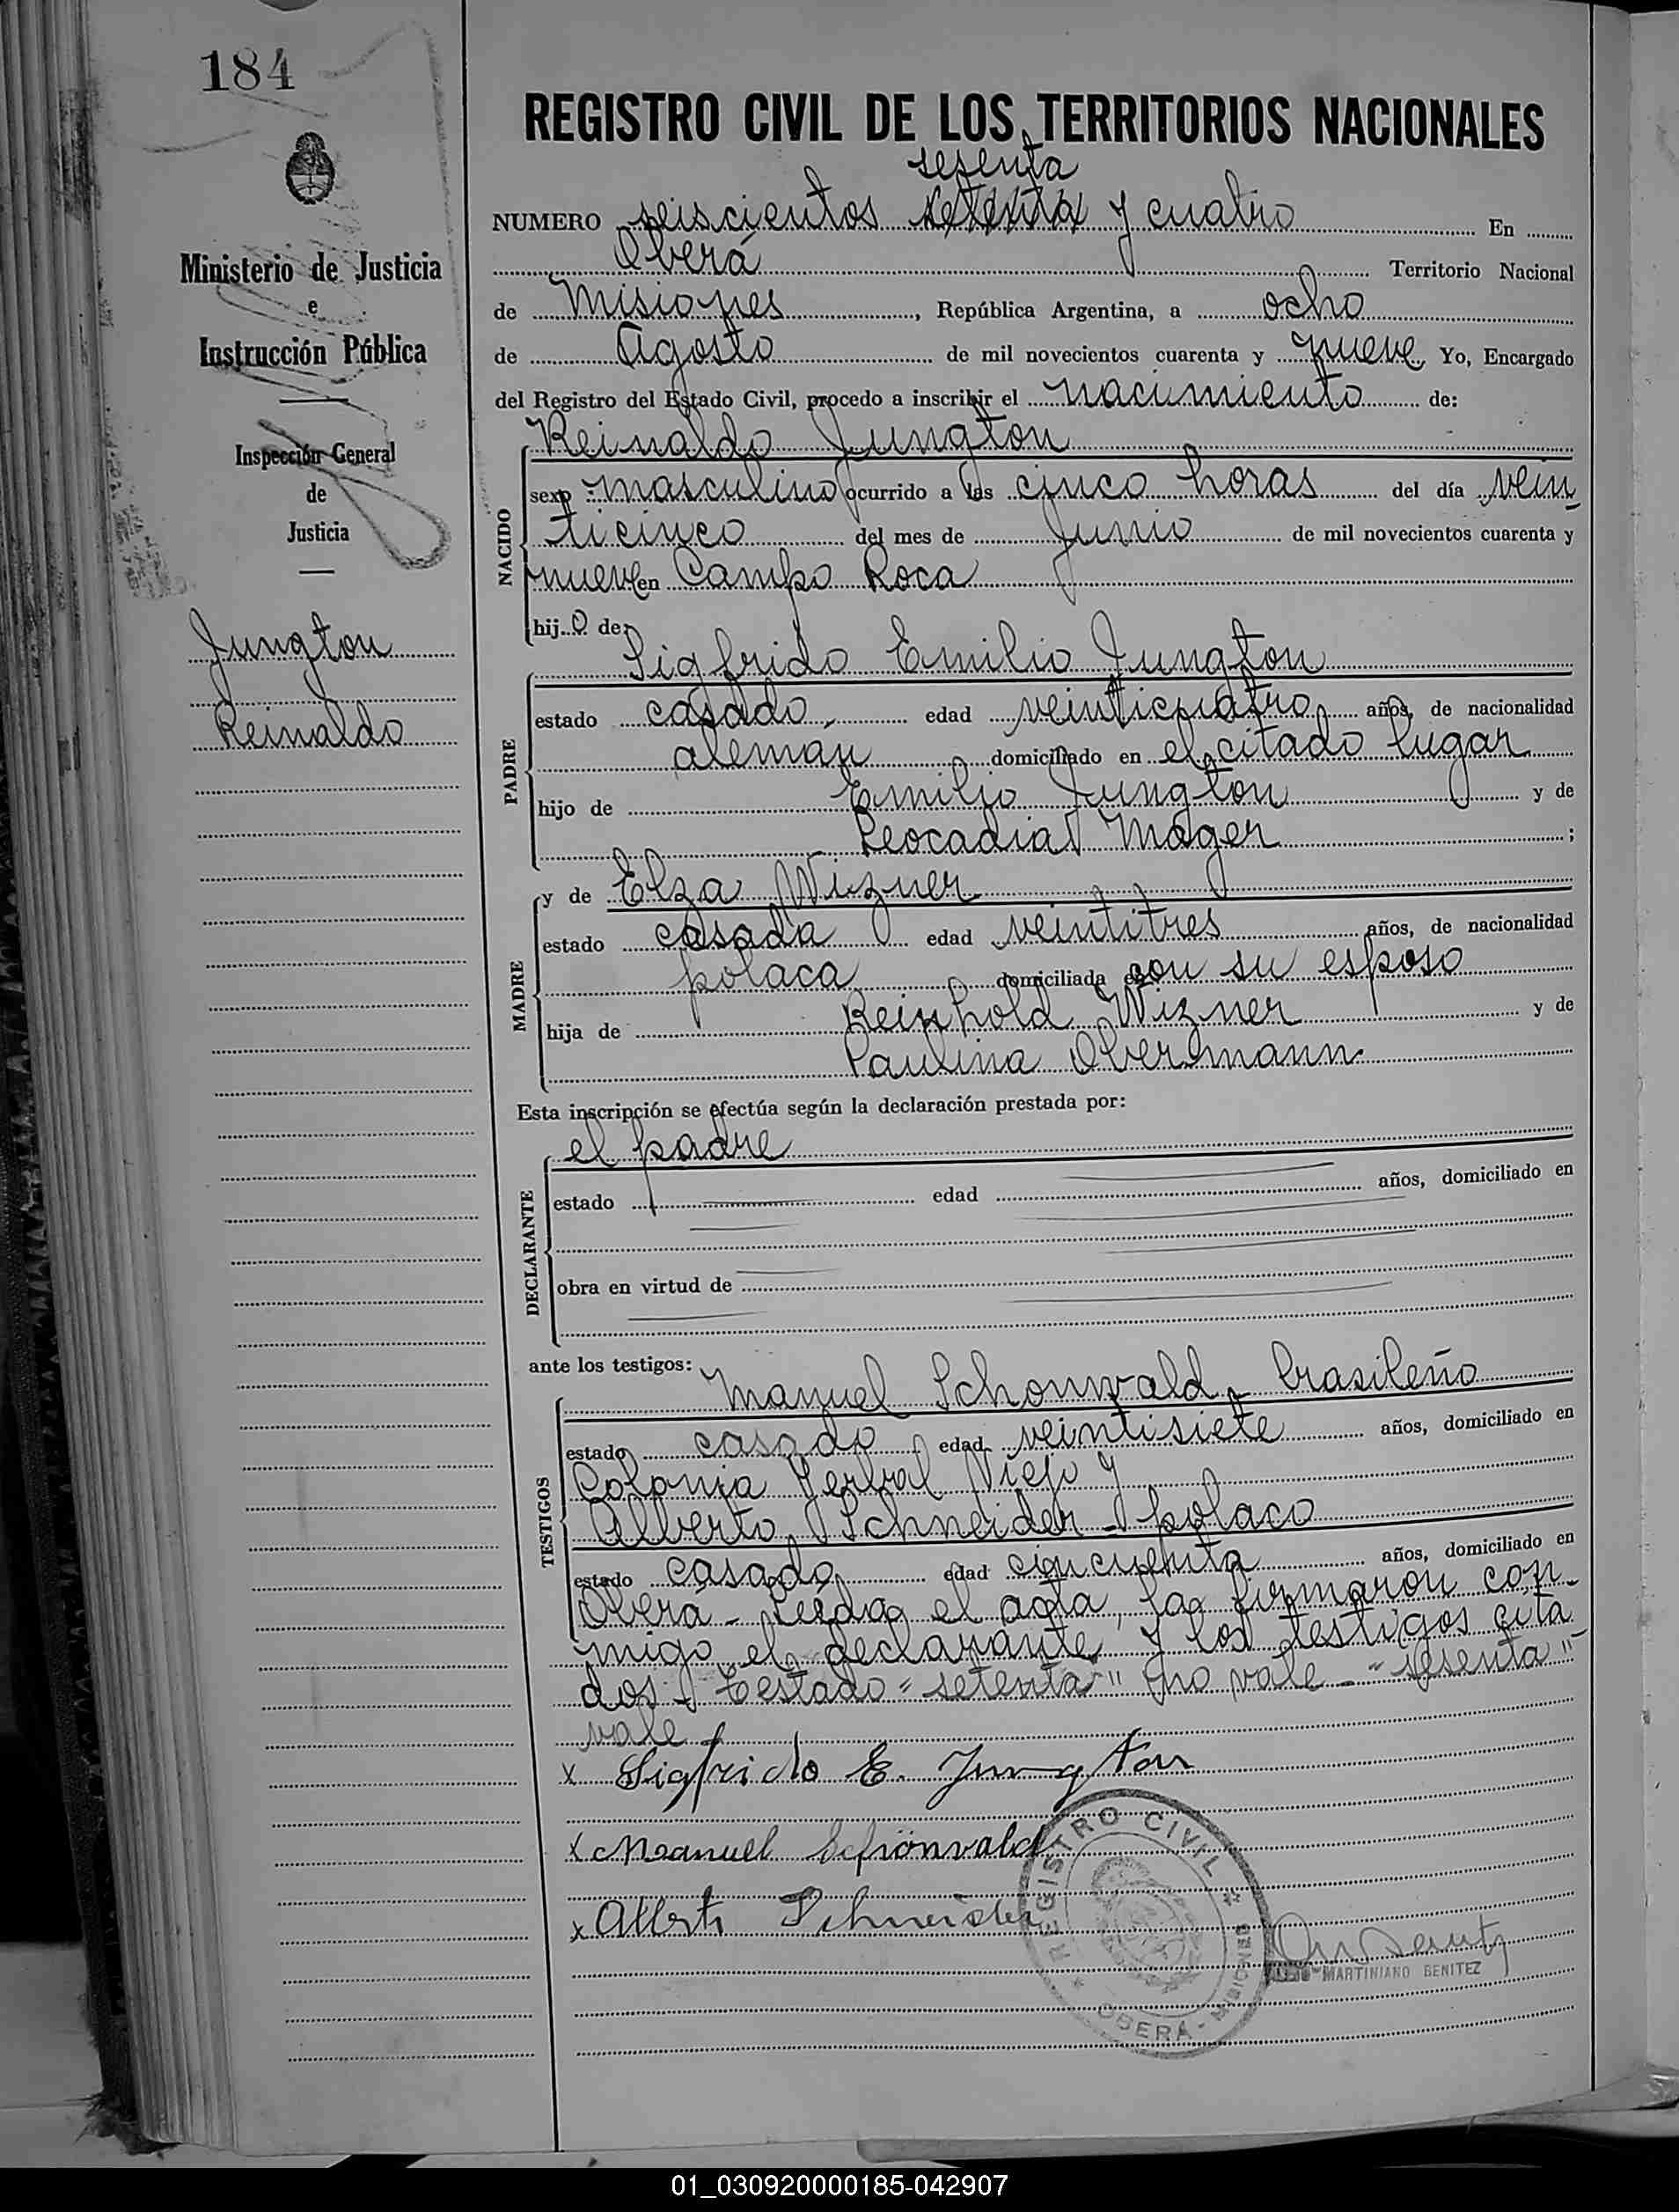 184
Ministerio de Justicia
e
Instrucción Pública
Inspección General
de
Justicia
Jungton
Reinaldo
REGISTRO CIVIL DE LOS TERRITORIOS NACIONALES
sesenta
NUMERO seiscientos setenta y cuatro En
Oberá Territorio Nacional
de Misiones, República Argentina, a ocho
de Agosto de mil novecientos cuarenta y nueve Yo, Encargado
del Registro del Estado Civil, procedo a inscribir el nacimiento de:
NACIDO
Reinaldo Jungton
sexo masculino ocurrido a las cinco horas del día vein
ticinco del mes de Junio de mil novecientos cuarenta y
nueve en Campo Roca
hijo de:
PADRE
Sigfrido Emilio Jungton
estado casado, edad veinticuatro años, de nacionalidad
alemán domiciliado en el citado lugar
hijo de Emilio Jungton y de
Leocadia Mager;
MADRE
y de Elza Wizner
estado casada edad veintitres años, de nacionalidad
polaca domiciliada con su esposo
hija de Reinhold Wizner y de
Paulina Obermann
Esta inscripción se efectúa según la declaración prestada por:
DECLARANTE
el padre
estado edad años, domiciliado en
obra en virtud de
ante los testigos:
TESTIGOS
Manuel Schonwald, brasileño
estado casado edad veintisiete años, domiciliado en
Colonia Yerbal Viejo y
Alberto Schneider - polaco
estado casado edad cincuenta años, domiciliado en
Oberá - Leída el acta, la firmaron con-
migo el declarante y los testigos cita
dos - Testado "setenta" no vale - "sesenta"
vale
x Sigfrido E. Jungton
x Manuel Schönvald
x Alberto Schneider
REGISTRO CIVIL
OBERÁ - MISIONES
MARTINIANO BENITEZ
01_030920000185-042907